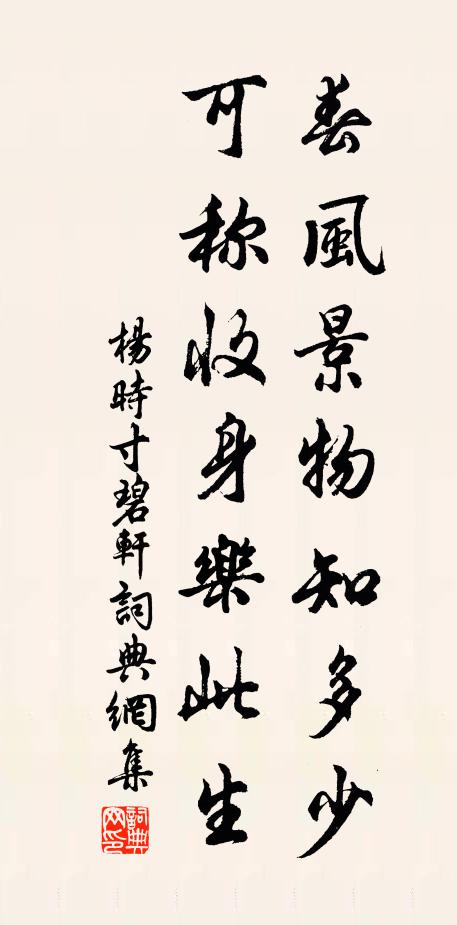 春風景物知多少
可称收身樂此生
楊時寸碧軒詞典網集
詞典網印